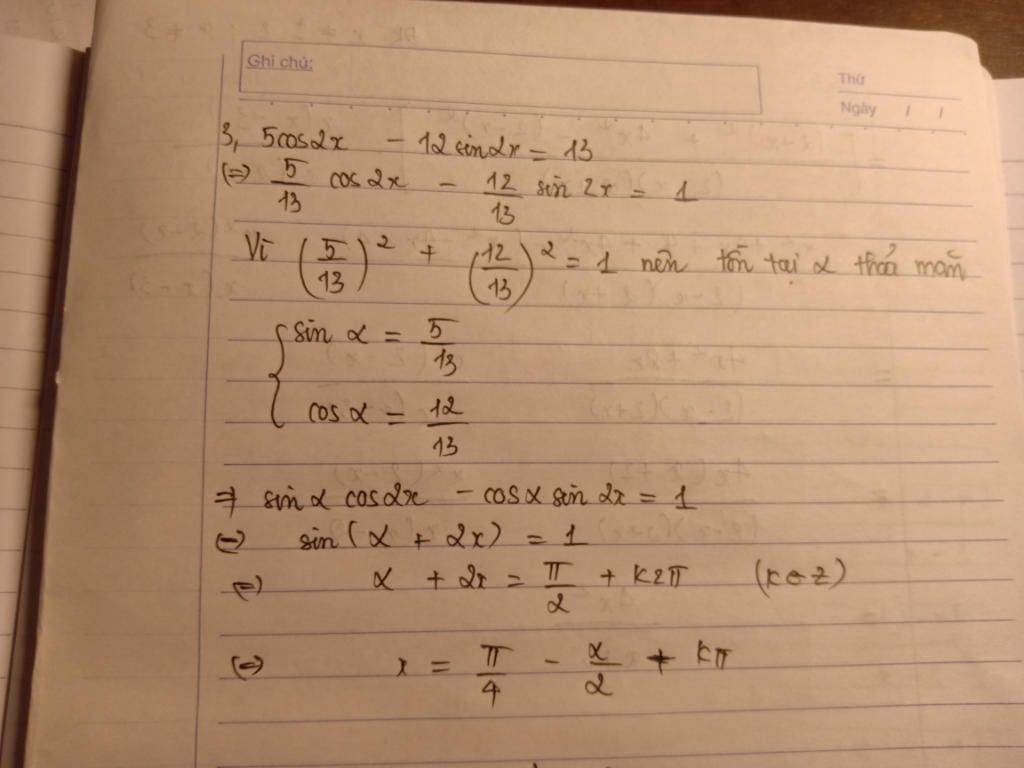 Ghi chú:
Thứ
Ngày / /
3, 5cos2x - 12sin2x = 13
(=) 5/13 cos2x - 12/13 sin 2x = 1
Vì (5/13)² + (12/13)² = 1 nên tồn tại α thoả mãn
{ sin α = 5/13
cos α = 12/13
=> sinα cos2x - cosα sin 2x = 1
(=) sin(α + 2x) = 1
(=) α + 2x = π/2 + k2π (k∈Z)
(=) x = π/4 - α/2 + kπ